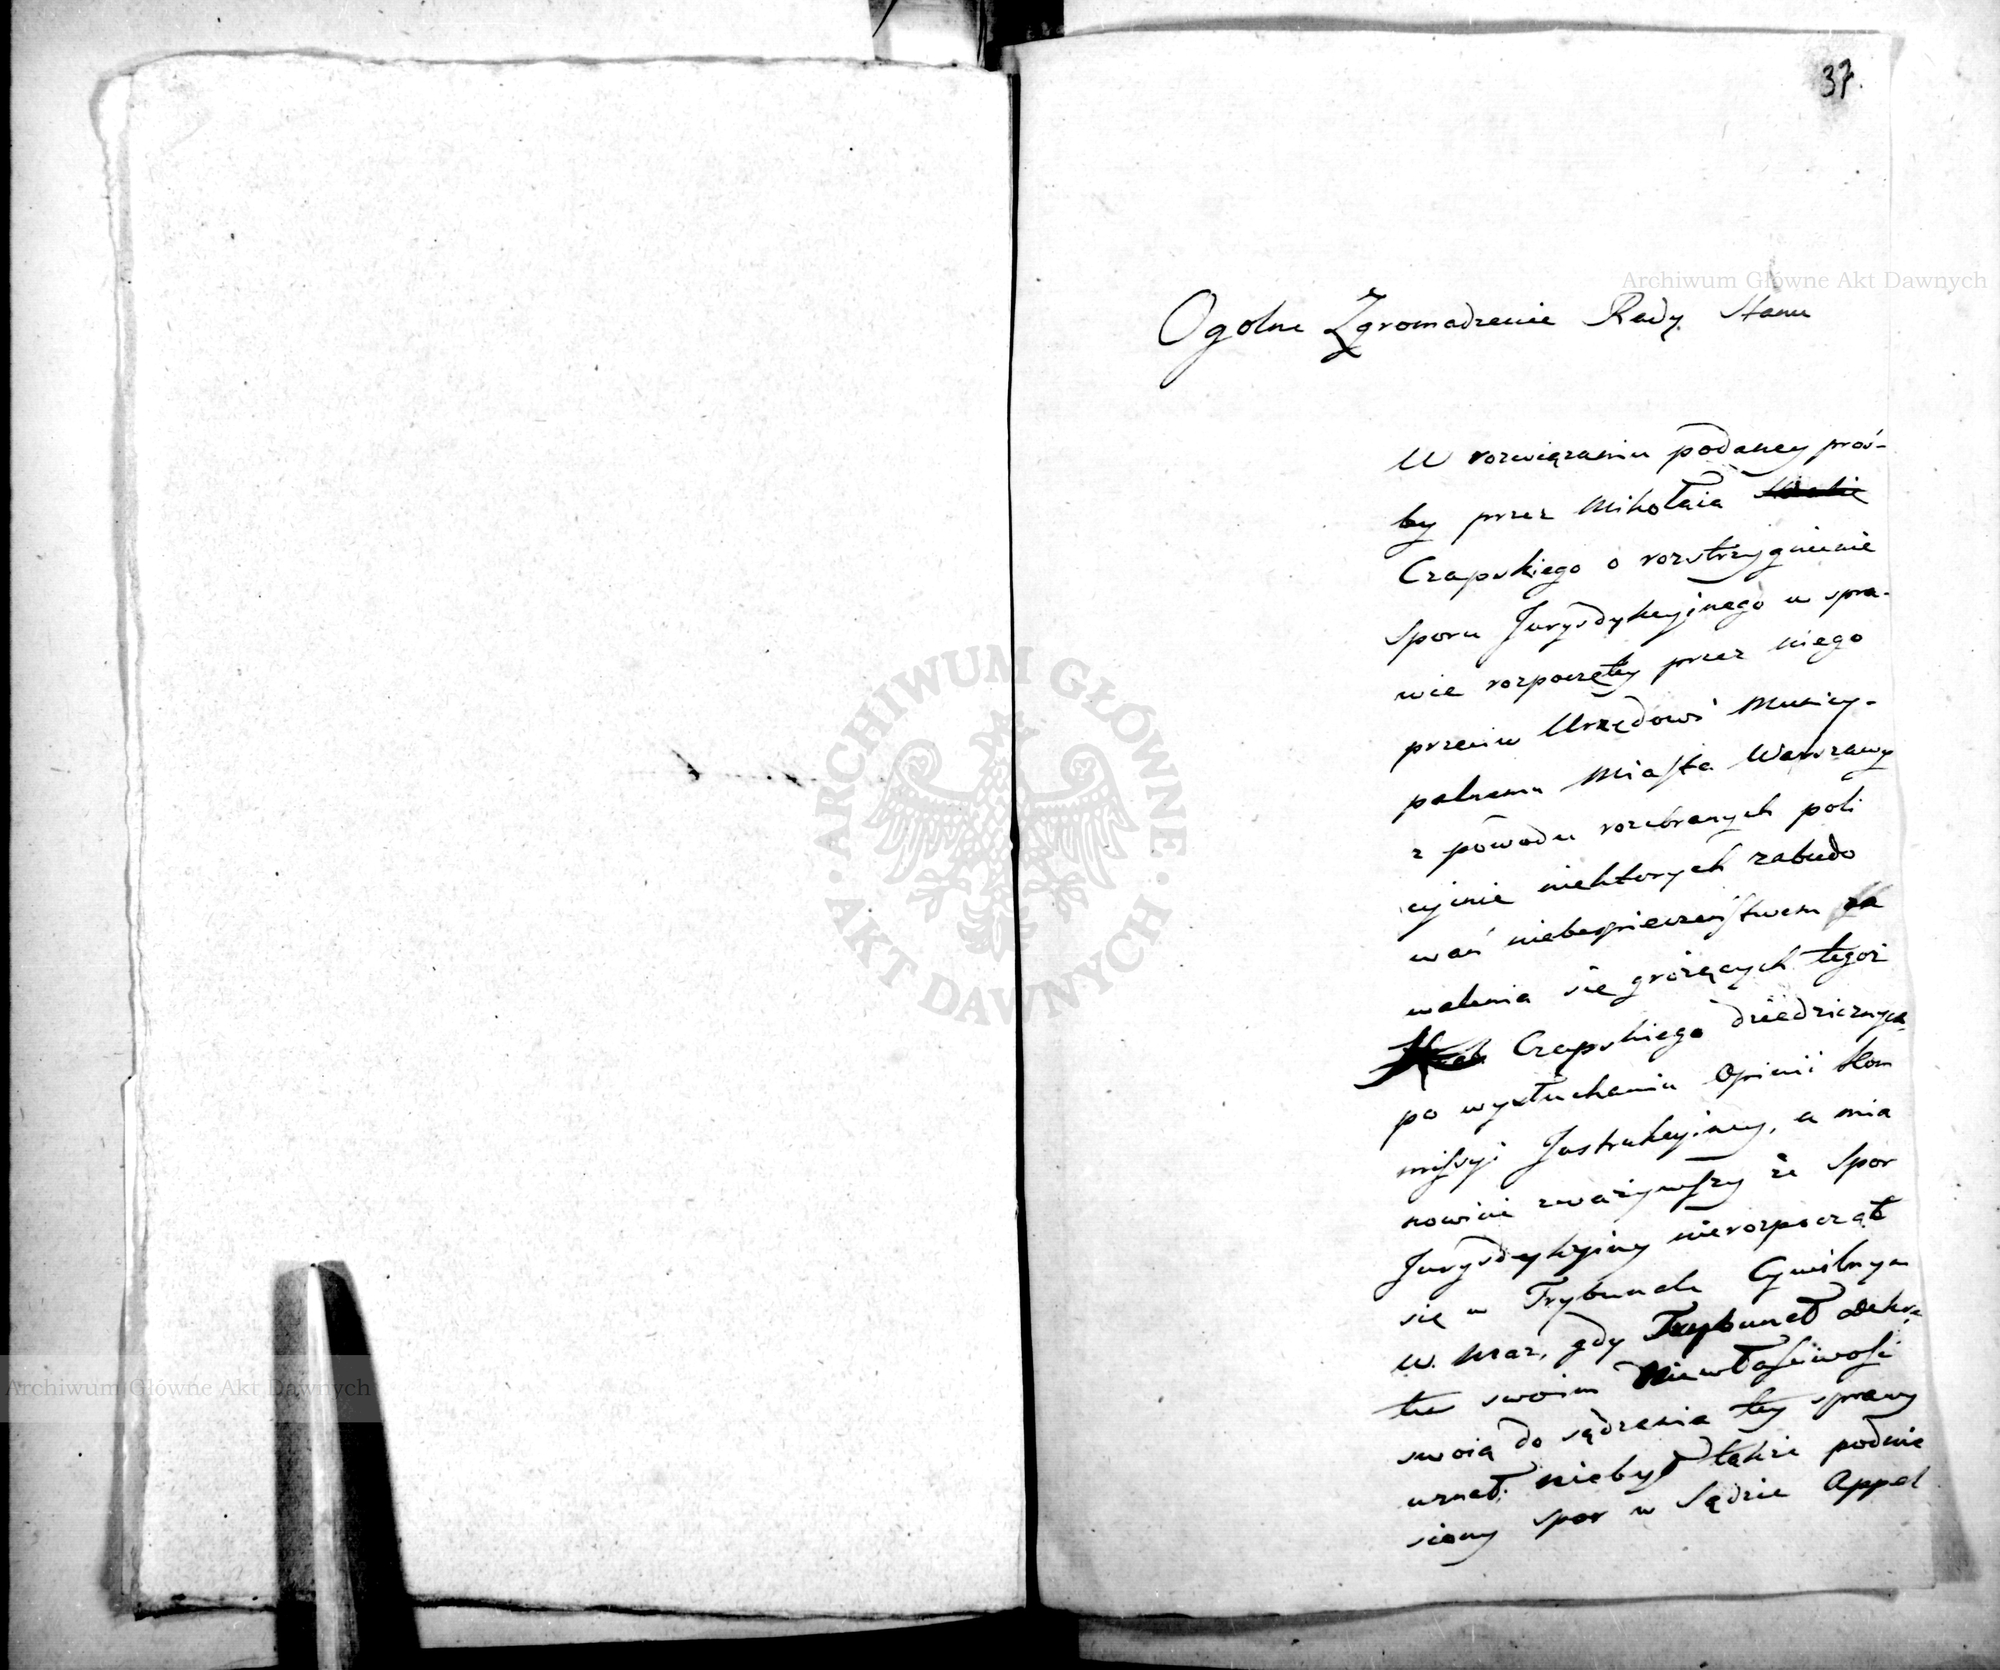 37.
Ogolne Zgromadzenie Rady Stanu
W rozwiązaniu podaney proś-
by przez Mikołaia
Czapskiego o rozstrzygnienie
Sporu Jurysdykcyjnego w spra-
wie rozpoczętey przez niego
przeciw Urzędowi Municy-
palnemu Miasta Warszawy
z powodu rozebranych poli
cyjnie niektorych zabudo
wań niebespieczeństwem za
walenia się grożących tegoż
Czapskiego dziedzicznych,
po wysłuchaniu Opinii Kom
missyi Instrukcyiney, a mia
nowicie zważywszy że Spor
Jurysdykcyiny nierozpoczął
się w Trybunale Cywilnym
W. Maz, gdy Trybunał dekre
tem swoim Niewłaściwość
swoią do sądzenia tey sprawy
uznał, niebył także podnie
siony spor w Sądzie Appel
Archiwum Główne Akt Dawnych
ARCHIWUM GŁÓWNE
· AKT DAWNYCH ·
Archiwum Główne Akt Dawnych